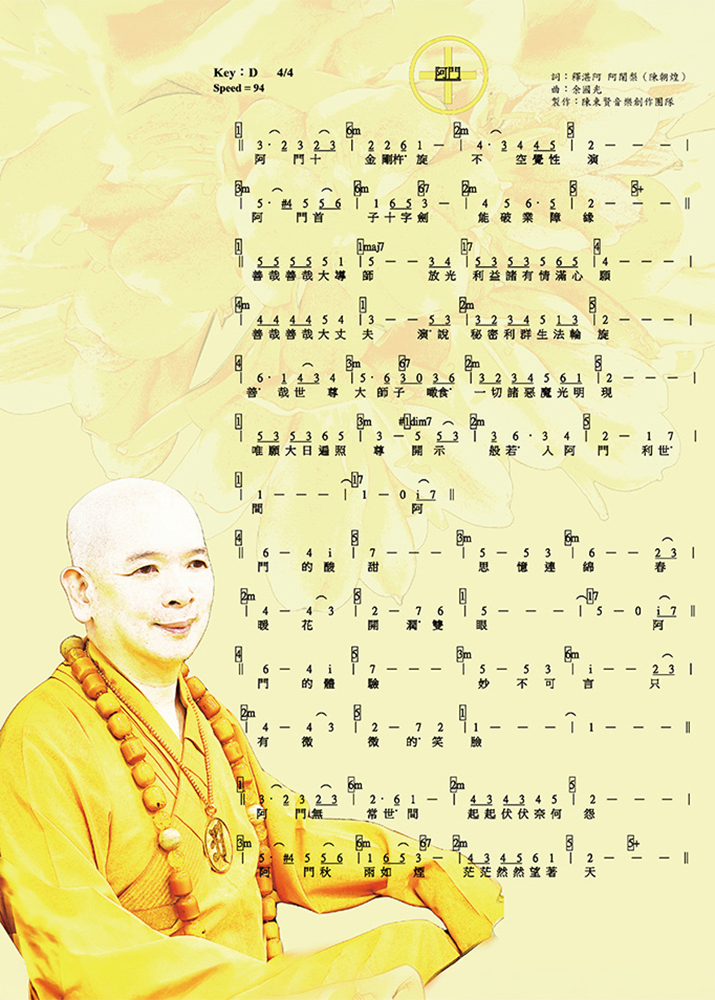 Key：D 4/4
Speed = 94
阿門
詞：釋湛阿 阿闍梨（陳朝煌）
曲：余國光
製作：陳東賢音樂創作團隊
1 6m 2m 5
‖ 3· 2 3 2 3 | 2 2 6 1 — | 4· 3 4 4 5 | 2 — — — |
阿 門十 金剛杵ˇ旋 不 空覺性 演
3m 6m 67 2m 5 5+
| 5· #4 5 5 6 | 1 6 5 3 — | 4 5 6· 5 | 2 — — — ‖
阿 門首 子十字劍 能破業障緣
1 1maj7 17 4
‖ 5 5 5 5 5 1 | 5 — — 3 4 | 5 3 5 3 5 6 5 | 4 — — — |
善哉善哉大導 師 放光 利益諸有情滿心 願
4m 1 2m 5
| 4 4 4 4 5 4 | 3 — — 5 3 | 3 2 3 4 5 1 3 | 2 — — — |
善哉善哉大丈 夫 演ˇ說 秘密利群生法輪 旋
4 3m 67 2m 5
| 6· 1 4 3 4 | 5· 6 3 0 3 6 | 3 2 3 4 5 6 1 | 2 — — — |
善ˇ 哉世 尊 大師子 噉食ˇ 一切諸惡魔光明 現
1 3m #1dim7 2m 5
| 5 3 5 3 6 5 | 3 — 5 5 3 | 3 6· 3 4 | 2 — 1 7 |
唯願大日遍照 尊 開示 般若ˇ 人阿門利世ˇ
1 17
| 1 — — — | 1 — 0 i 7 ‖
間 阿
4 5 3m 6m
‖ 6 — 4 i | 7 — — — | 5 — 5 3 | 6 — — 2 3 |
門 的酸 甜 思 憶連 綿 春
2m 5 1 17
| 4 — 4 3 | 2 — 7 6 | 5 — — — | 5 — 0 i 7 |
暖 花 開 濶ˇ雙 眼 阿
4 5 3m 6m
| 6 — 4 i | 7 — — — | 5 — 5 3 | i — — 2 3 |
門 的體 驗 妙 不可 言 只
2m 5 1
| 4 — 4 3 | 2 — 7 2 | 1 — — — | 1 — — — ‖
有 微 微 的ˇ笑 臉
1 6m 2m 5
‖ 3· 2 3 2 3 | 2· 6 1 — | 4 3 4 3 4 5 | 2 — — — |
阿 門無 常世ˇ間 起起伏伏奈何 怨
3m 6m 67 2m 5 5+
| 5· #4 5 5 6 | 1 6 5 3 — | 4 3 4 5 6 1 | 2 — — — ‖
阿 門秋 雨如 煙 茫茫然然望著 天